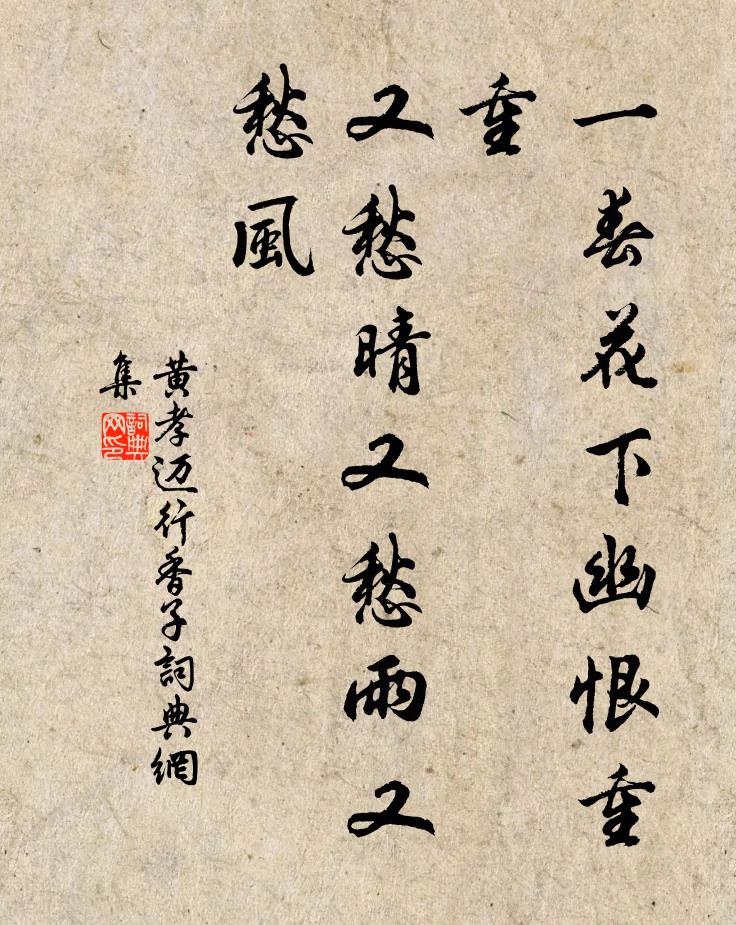 一春花下幽恨重
重
又愁晴又愁雨又
愁風
黄孝迈行香子詞典網
集
詞典
网印